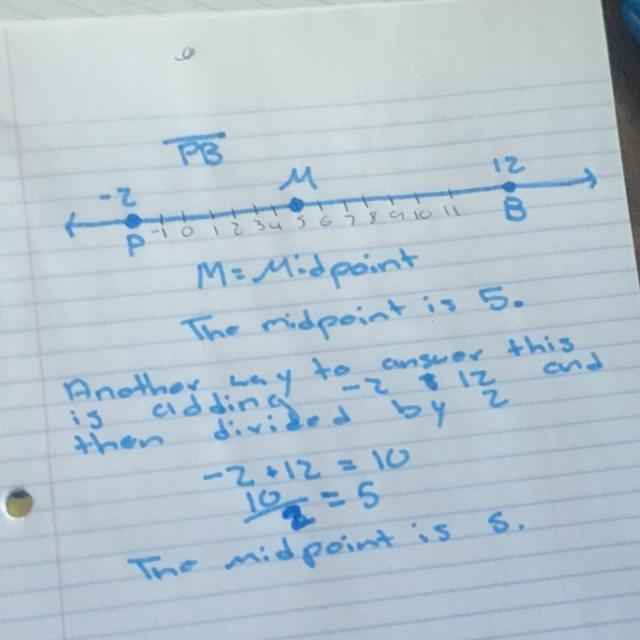 PB
-2 M 12
P -1 0 1 2 3 4 5 6 7 8 9 10 11 B
M = Midpoint
The midpoint is 5.
Another way to answer this
is adding -2 & 12 and
then divided by 2
-2 + 12 = 10
10/2 = 5
The midpoint is 5.